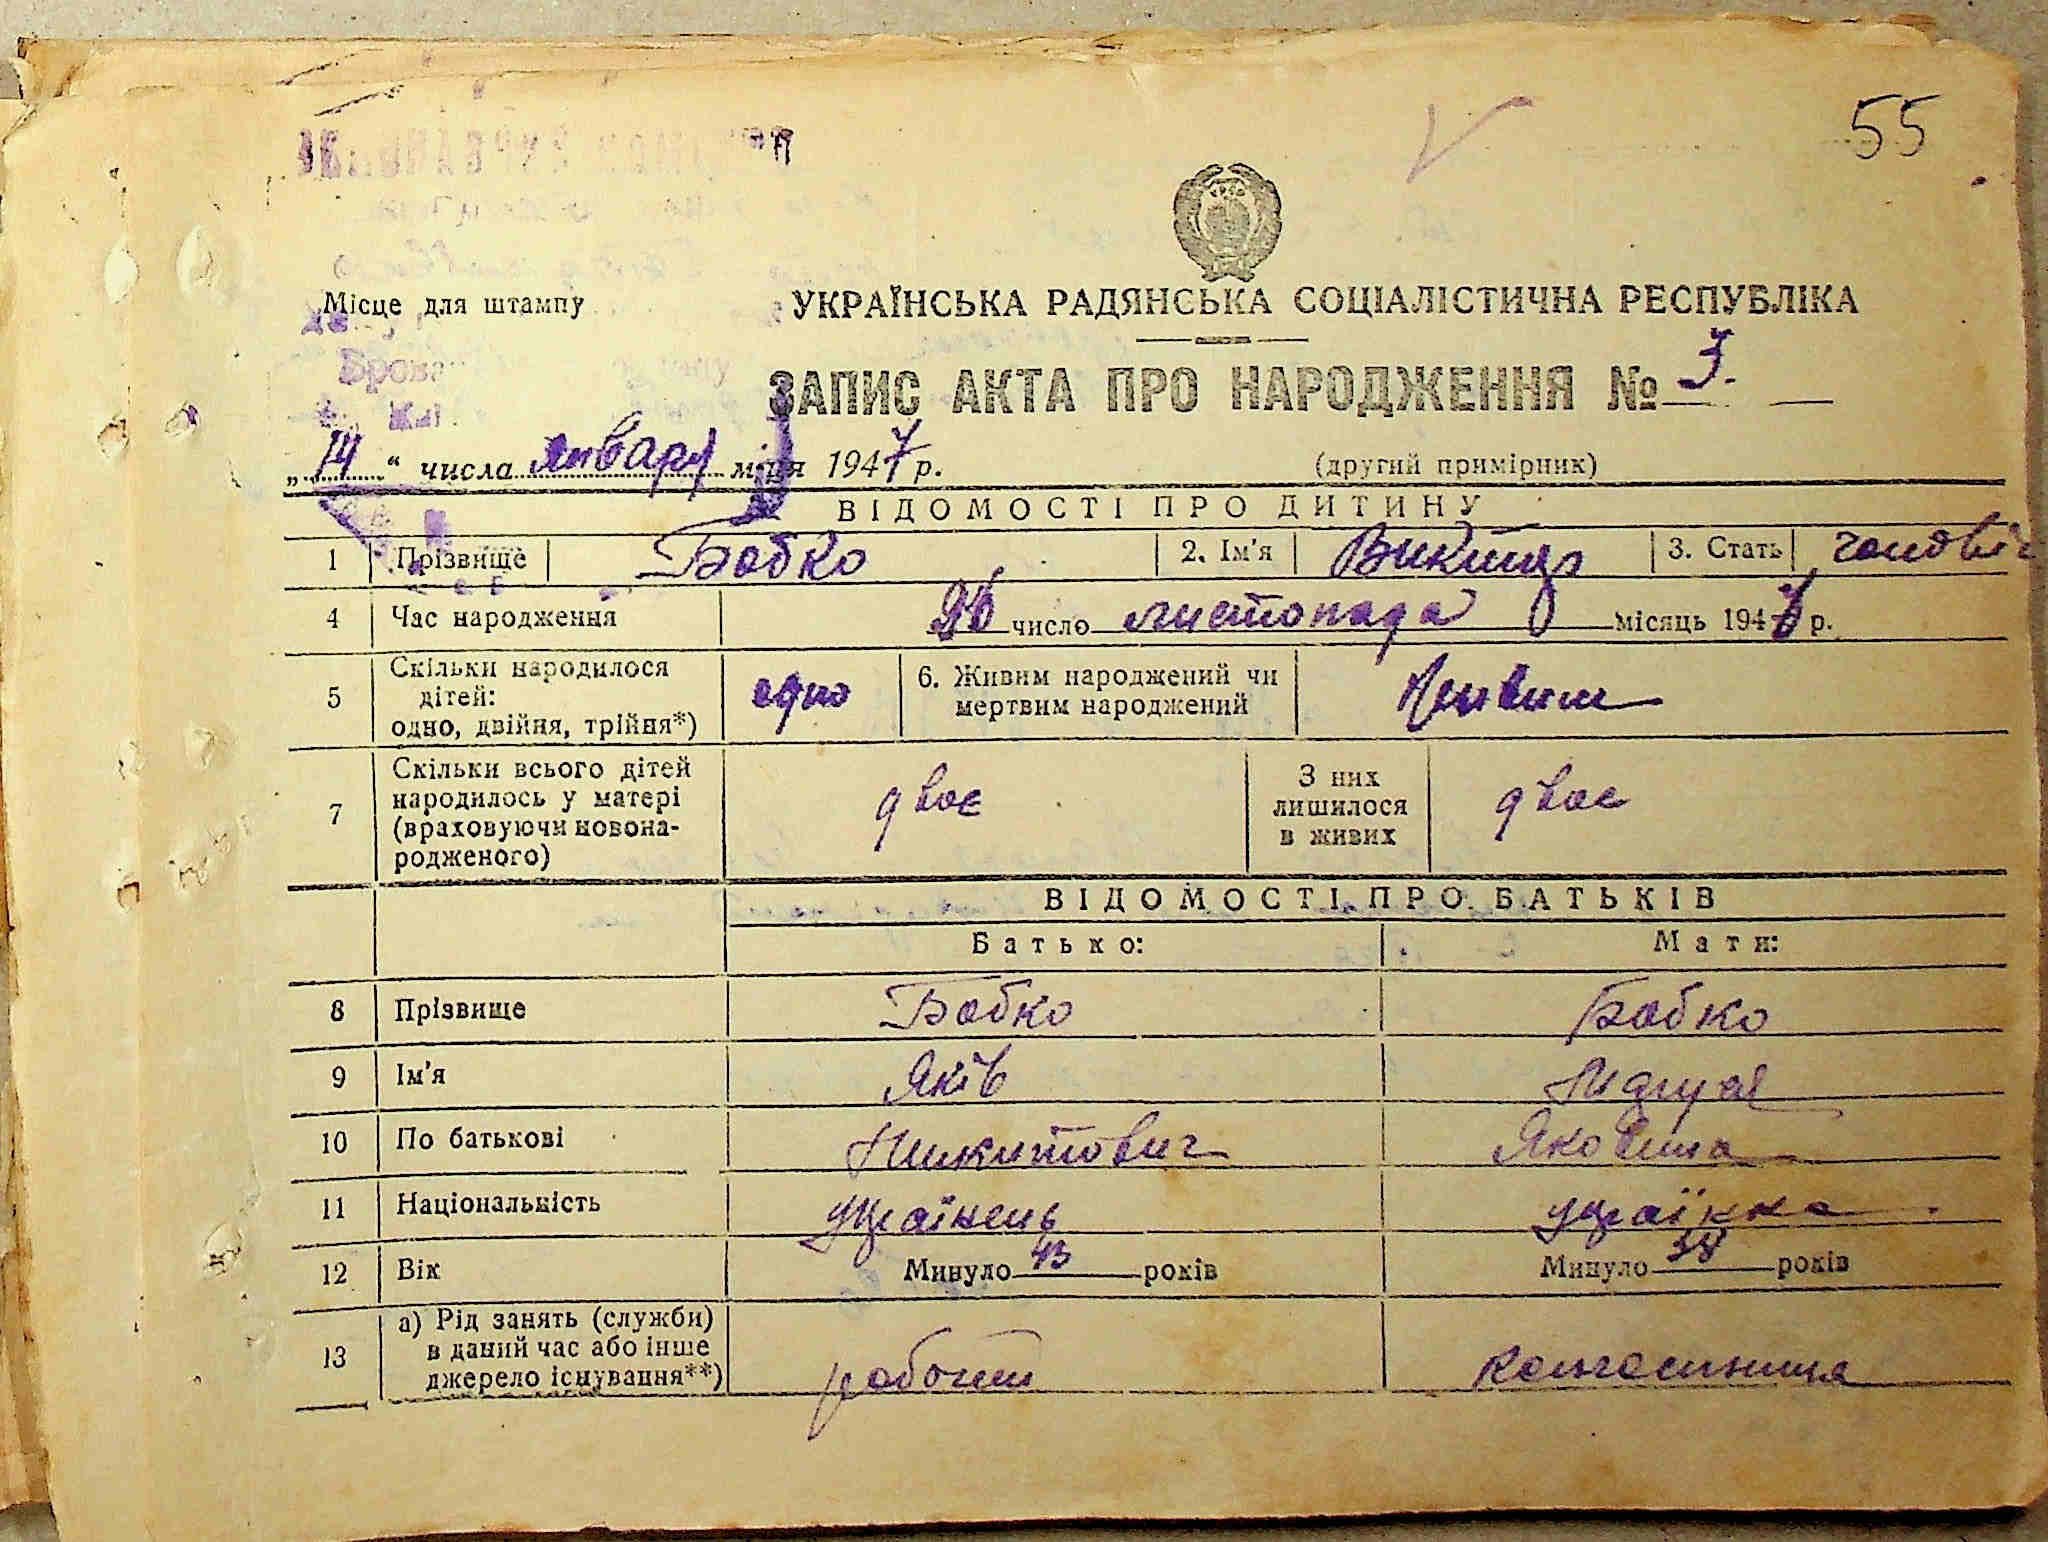 55
Місце для штампу
УКРАЇНСЬКА РАДЯНСЬКА СОЦІАЛІСТИЧНА РЕСПУБЛІКА
ЗАПИС АКТА ПРО НАРОДЖЕННЯ № 3.
„14“ числа января м-ця 1947 р. (другий примірник)
ВІДОМОСТІ ПРО ДИТИНУ
1 Прізвище Бобко 2. Ім'я Виктор 3. Стать
4 Час народження 26 число листопада місяць 1946 р.
5 Скільки народилося дітей: одно, двійня, трійня*) одно 6. Живим народжений чи мертвим народжений Живим
7 Скільки всього дітей народилось у матері (враховуючи новонародженого) двоє З них лишилося в живих двоє
ВІДОМОСТІ ПРО БАТЬКІВ
Батько: Мати:
8 Прізвище Бобко Бобко
9 Ім'я Яків
10 По батькові Никитович Яковина
11 Національність Українець українка
12 Вік Минуло 43 років Минуло 38 років
13 а) Рід занять (служби) в даний час або інше джерело існування**) робочий колгоспниця